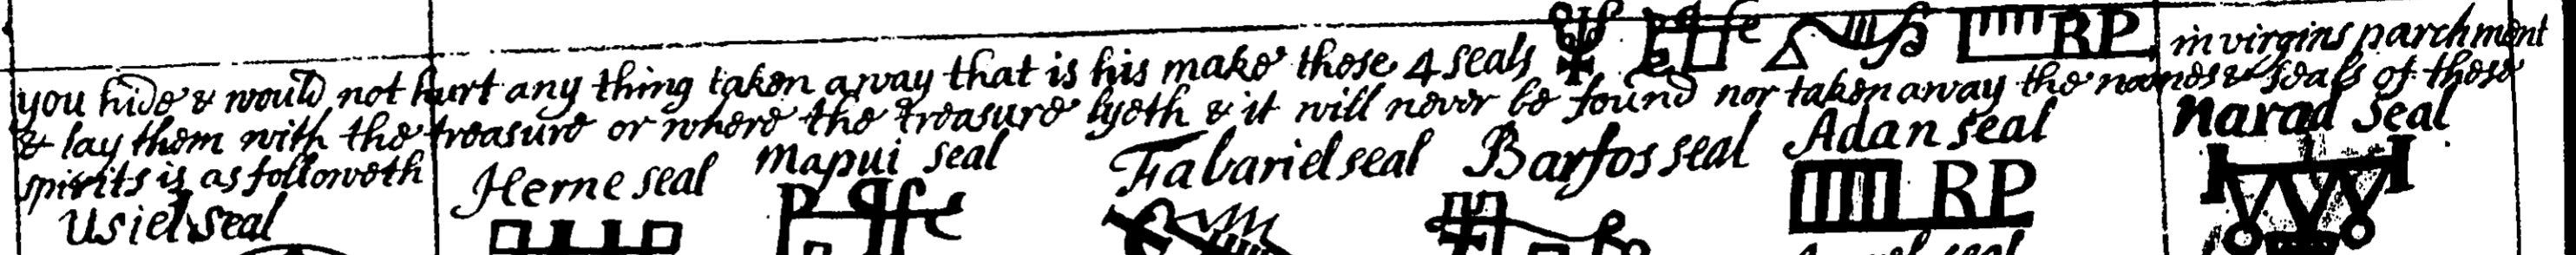 you hide & would not hurt any thing taken away that is his make these 4 seals in virgins parchment
& lay them with the treasure or where the treasure lyeth & it will never be found nor taken away the names & seals of these
spirits is as followeth
Usiel seal Herne seal Mapui seal Fabariel seal Barfos seal Adan seal Narad seal
RP